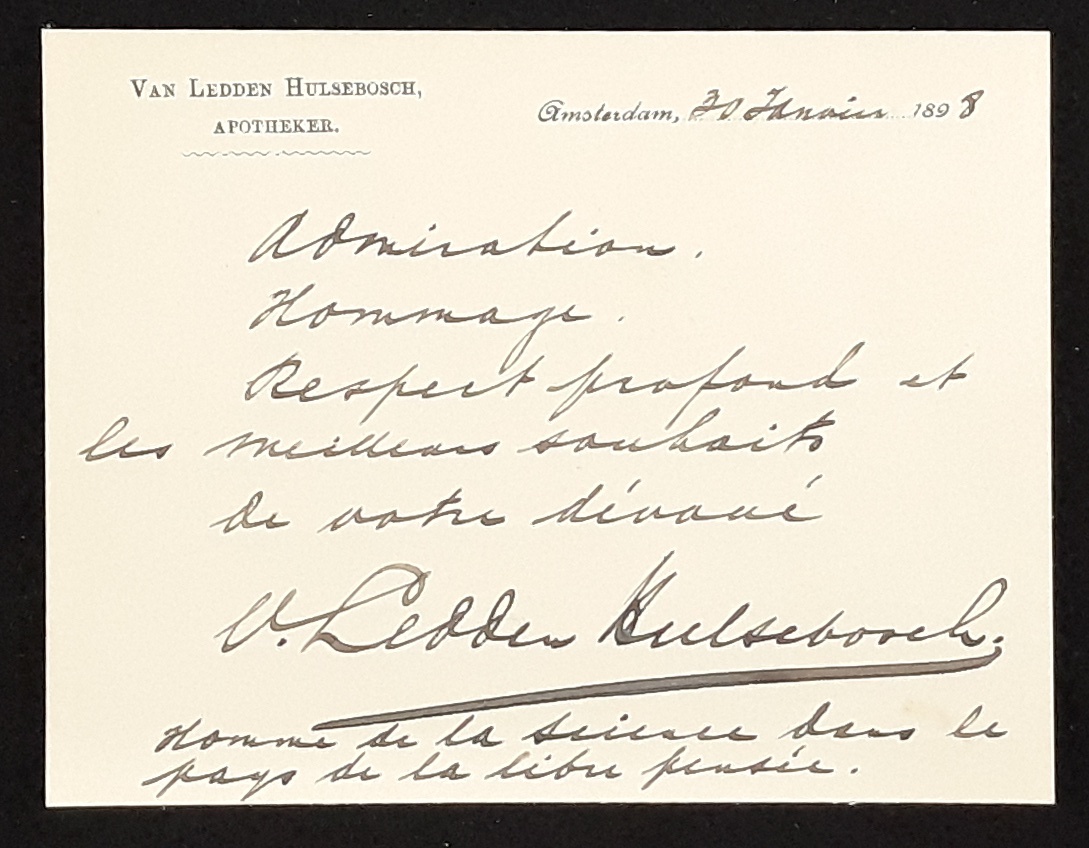 VAN LEDDEN HULSEBOSCH,
APOTHEKER.
Amsterdam, 30 Janvier 1898
Admiration.
Hommage.
Respect profond et
les meilleurs souhaits
de votre dévoué
V. Ledden Hulsebosch.
Homme de la science dans le
pays de la libre pensée.